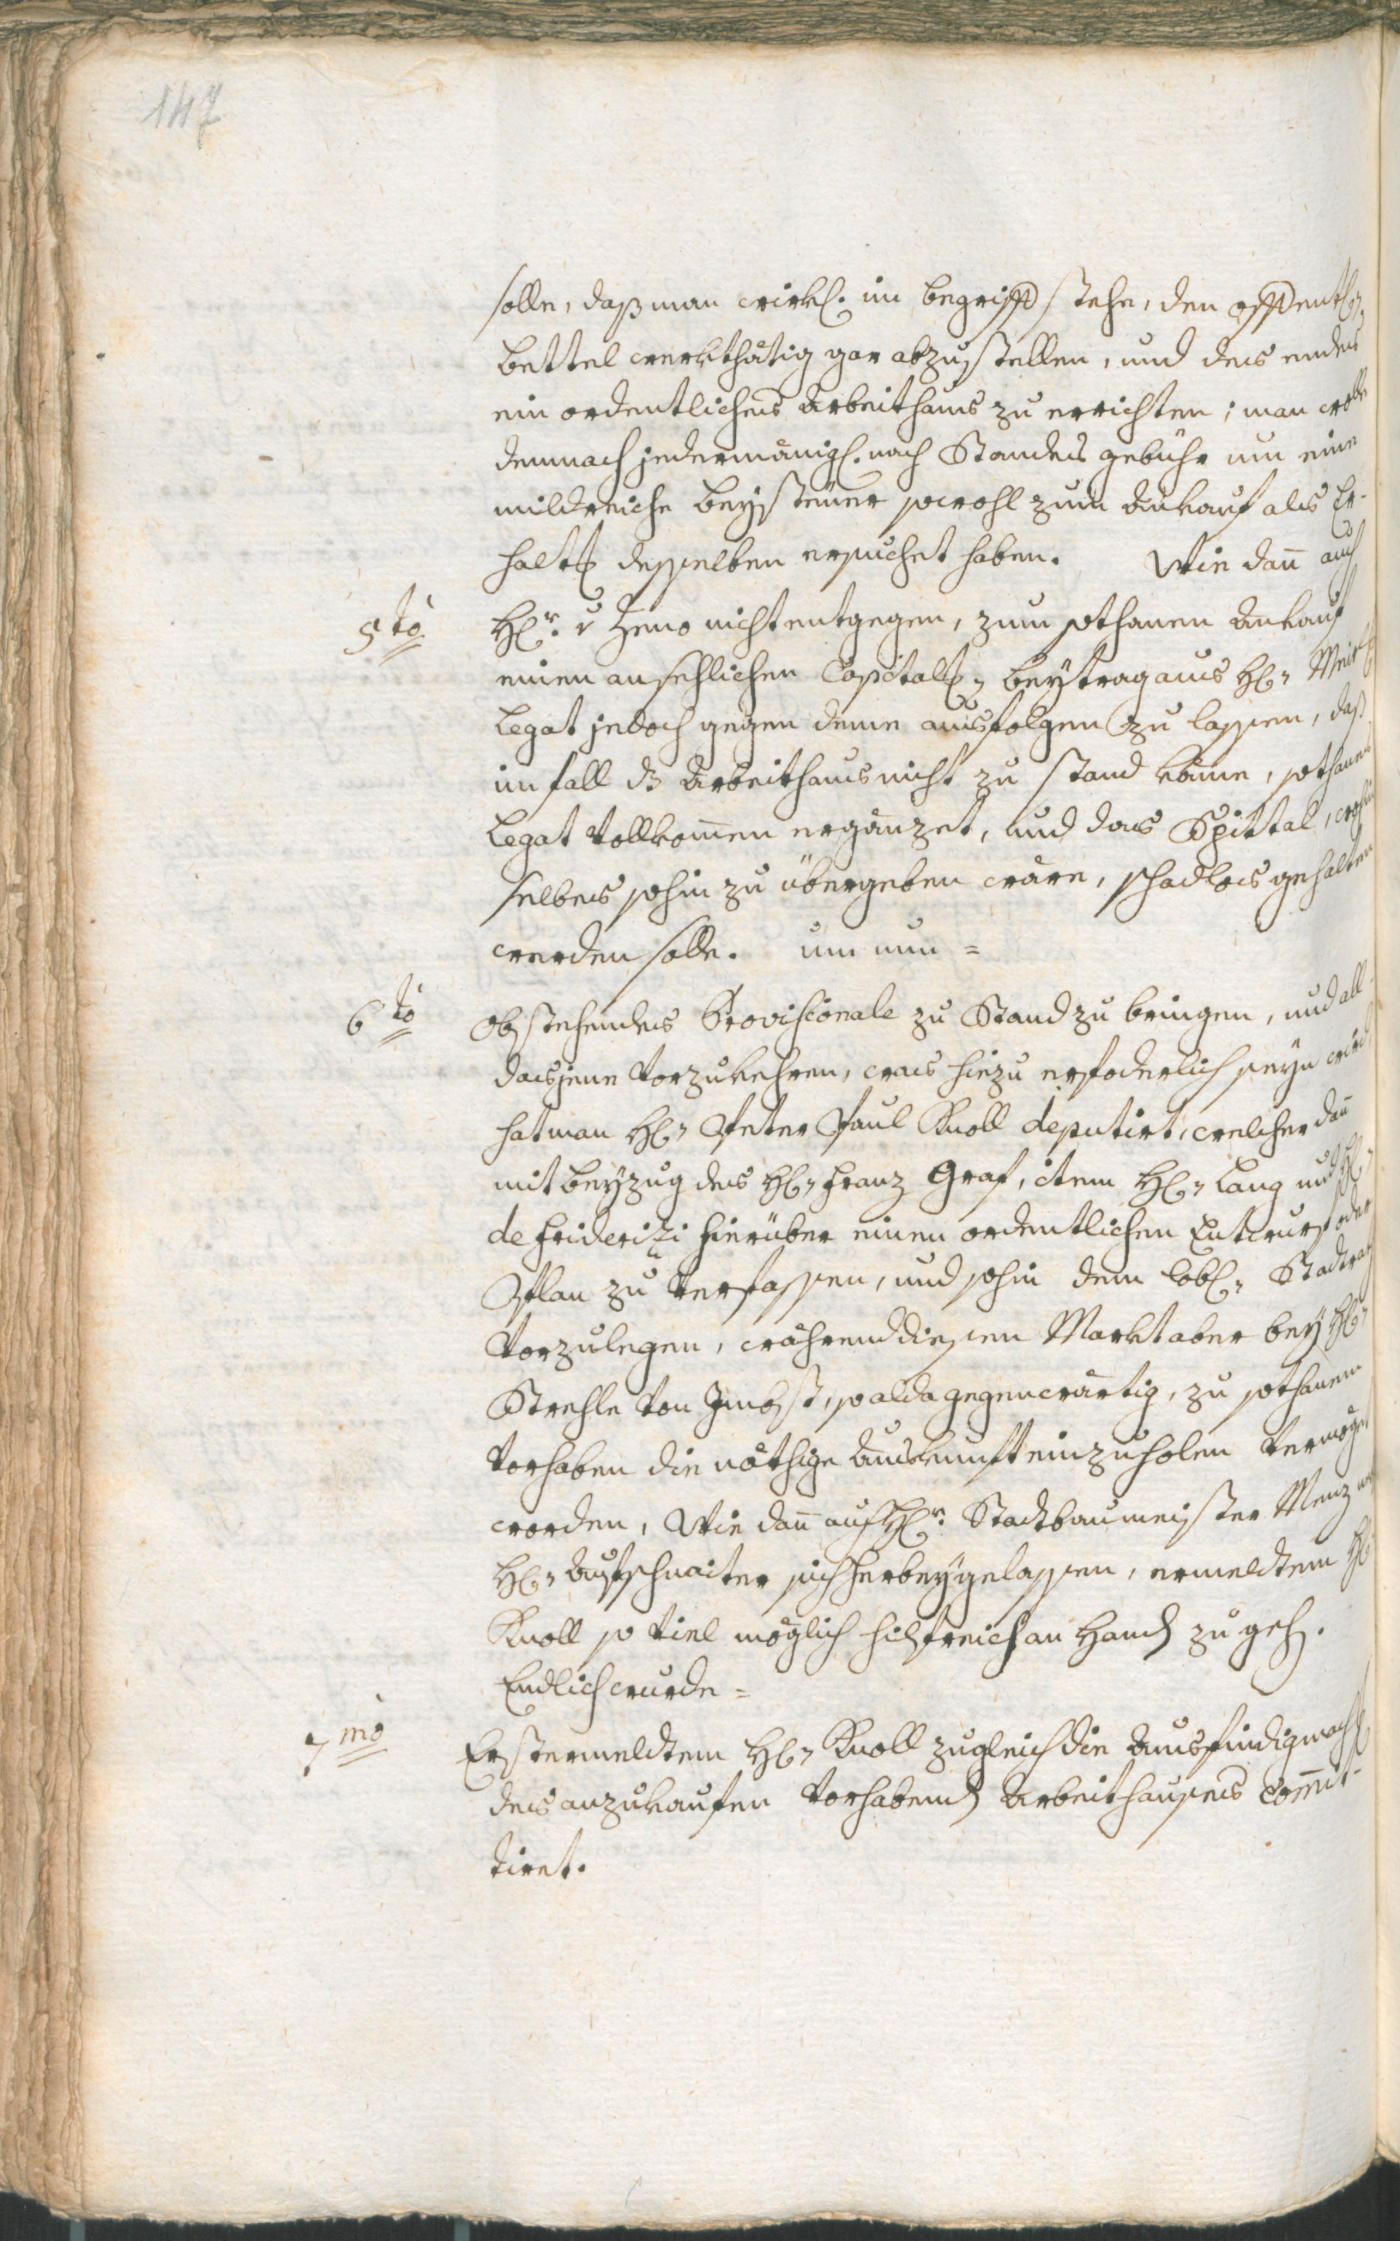 147
solle, daß man wirkl. im begriff stehe, den offentl.
bettel werkthätig gar abzustellen, und des endes
ein ordentliches Arbeithaus zu errichten; man wolle
demnach jedermänigl. nach Standes gebühr um eine
mildreiche beysteüer sowohl zum Ankauf als Er-
halt desselben ersuchet haben. Wie dañ auch
5to Hr. v Zeno nicht entgegen, zum sothanen Ankauf
einen ansehlichen Capitals beytrag aus H.
Legat jedoch gegen deme ausfolgen zu lassen, daß
im fall dz Arbeithaus nicht zu stand käme, sothanes
Legat vollkom̃en ergänzet, und das Spittal,
selbes sohin zu übergeben wäre, schadlos gehalten
werden solle. um nun =
6to Obstehendes Provisionale zu Stand zu bringen, und all
dasjene vorzukehren, was hiezu erfoderlich seyn wird,
hat man H. Peter Paul Knoll deputirt, welcher dañ
mit beyzug des H. Franz Graf, item H. Lang und H.
de Friderizi hierüber einen ordentlichen Entwurf oder
Plan zu verfassen, und sohin dem Löbl. Stadtrath
vorzulegen, während diesen Markt aber bey H.
Strehle von Imbst, so alda gegenwärtig, zu sothanem
Vorhaben die nöthige Auskunft einzuholen vermögt
worden, Wie dañ auch Hr. Stadtbaumeister Menz und
H. Aufschnaiter sich herbeygelassen, ermeldtem H.
Knoll so viel möglich hilfreich an Hand zu gehen.
Endlich wurde =
7mo Erstermeldtem H. Knoll zugleich die Ausfindigmach
des anzukaufen vorhabend Arbeithauses com̃it-
tiret.